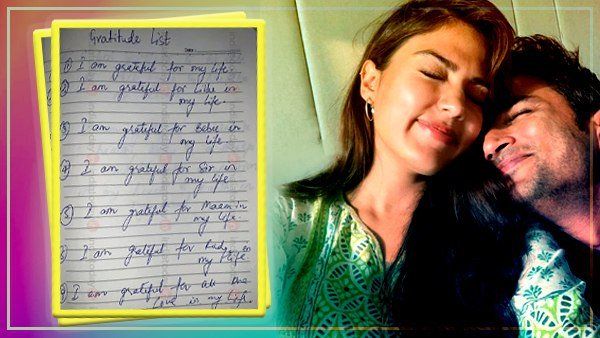 Gratitude List
Date:
① I am grateful for my life.
② I am grateful for Lillu in
my life.
③ I am grateful for Bebu in
my life.
④ I am grateful for Sir in
my life
⑤ I am grateful for Maam in
my life.
⑥ I am grateful for in
my life.
⑦ I am grateful for all the
Love in my life